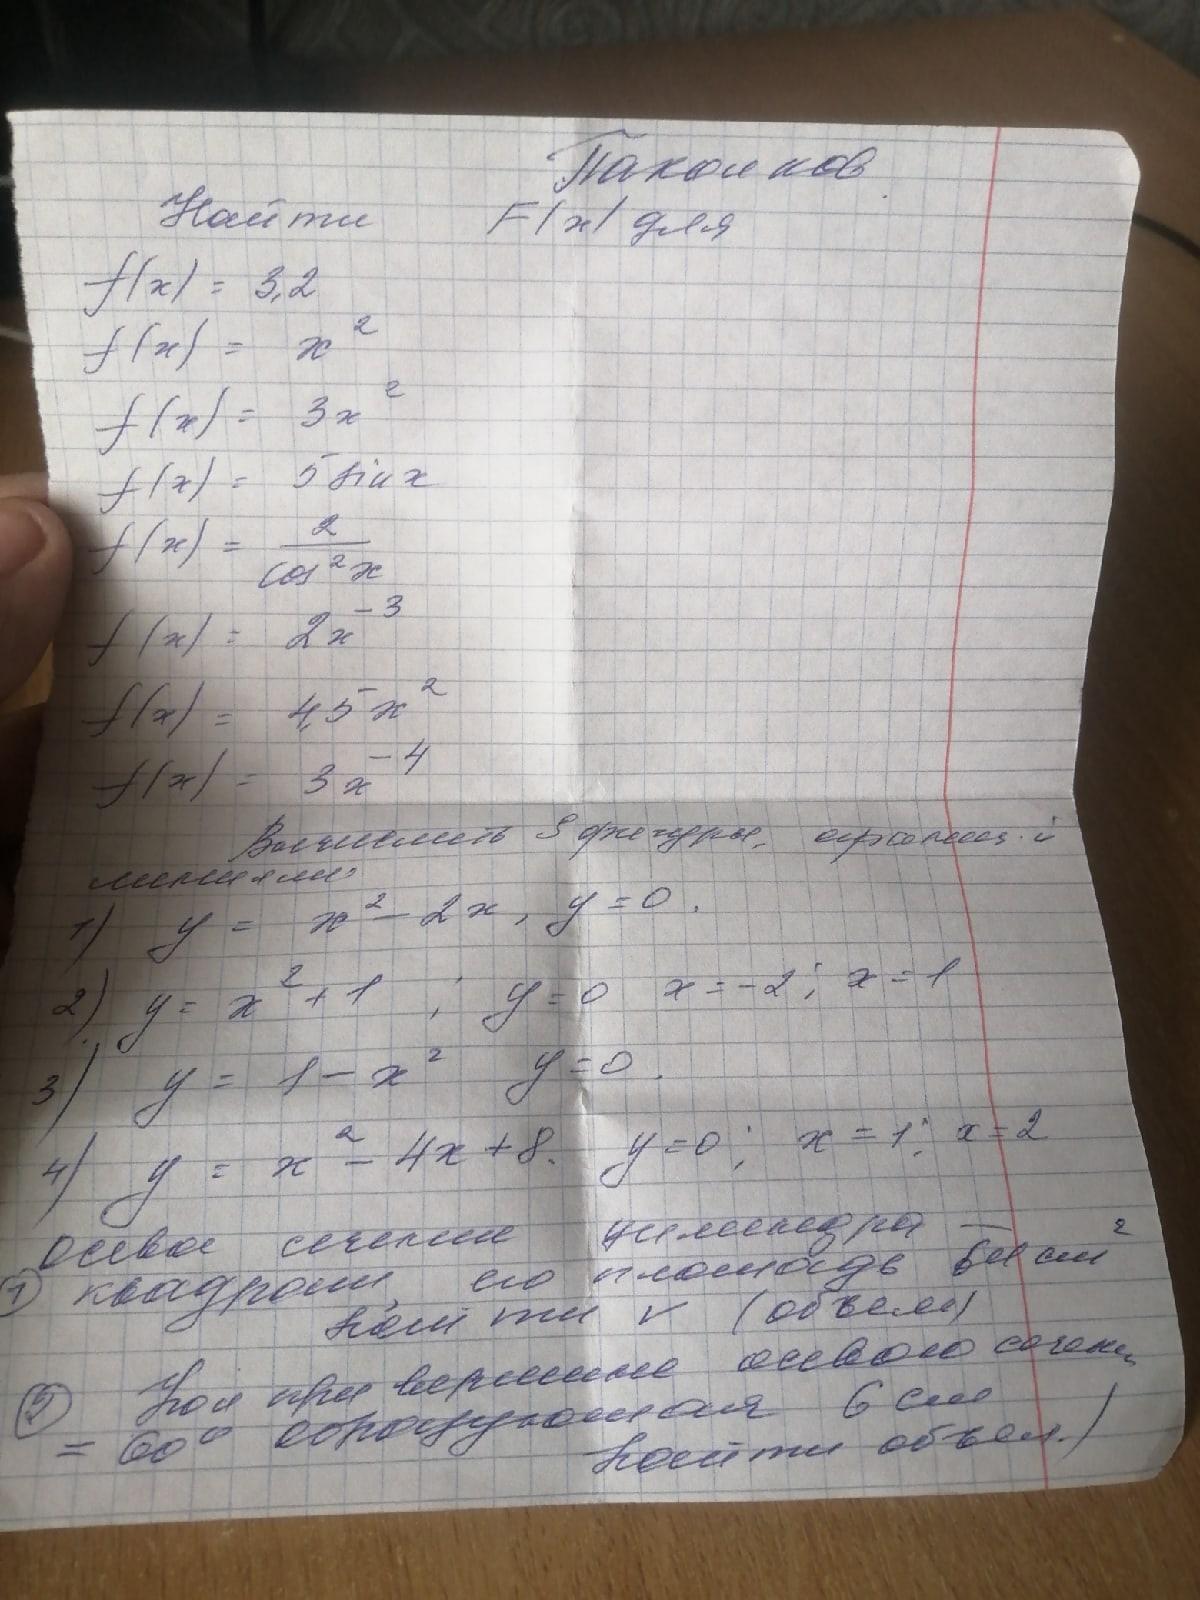 Найти F(x) для
f(x) = 3,2
f(x) = x²
f(x) = 3x²
f(x) = 5 sin x
f(x) = 2/cos²x
f(x) = 2x⁻³
f(x) = 4,5x²
f(x) = 3x⁻⁴
Вычислить S фигуры, огранич. й
линиями.
1) y = x² - 2x, y = 0.
2) y = x² + 1 ; y = 0 x = -2; x = 1
3) y = 1 - x² y = 0.
4) y = x² - 4x + 8. y = 0; x = 1; x = 2
осевое сечение цилиндра —
① квадрат, его площадь 64 см²
найти V (объем)
② при вершине осевого сечени
= 60° образующая 6 см
найти объем.)